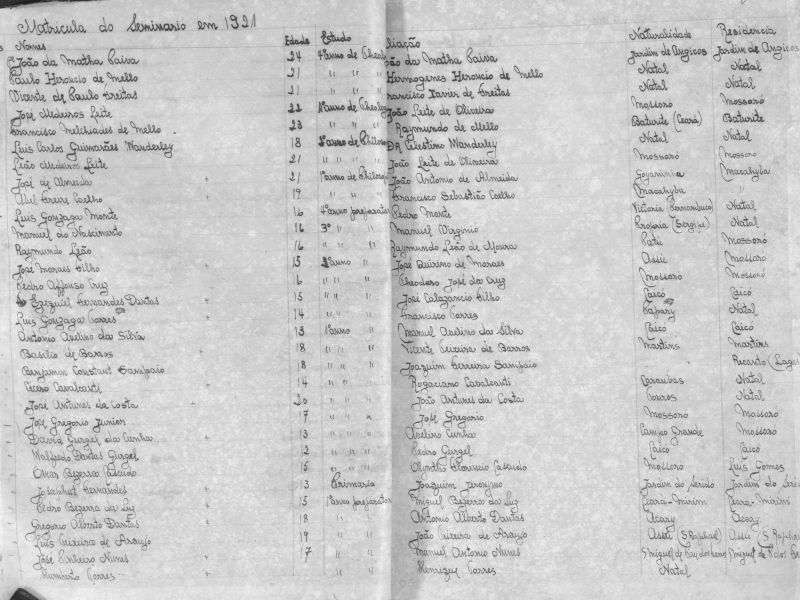 Matricula do Seminario em 1921
Nomes Edade Estudo Filiação Naturalidade Residencia
João da Matha Paiva 24 4º anno de Theol João da Matha Paiva Jardim de Angicos Jardim de Angicos
Paulo Heroncio de Mello 21 " " " Hermogenes Heroncio de Mello Natal Natal
Vicente de Paulo Freitas 21 " " " Francisco Xavier de Freitas Natal Natal
José Medeiros Leite 22 1º anno de Theolog João Leite de Oliveira Mossoró Mossoró
Francisco Melchiades de Mello 23 " " " Raymundo de Mello Baturité (Ceará) Baturité
Luis Carlos Guimarães Wanderley 18 anno de Philoso DR Celestino Wanderley Natal Natal
Leão Medeiros Leite 21 " " " João Leite de Oliveira Mossoró Mossoró
José de Almeida + 21 1º anno de Philosop João Antonio de Almeida Goyaninha Macahyba
Abel Freire Coelho 19 " " " Francisco Sebastião Coelho Macahyba "
Luis Gonzaga Monte 16 4º anno preparator Pedro Monte Victoria (Pernambuco) Natal
Manuel do Nascimento 16 3º " " Manuel Virginio Propria (Sergipe) Natal
Raymundo Leão 16 " " " Raymundo Leão de Moura Patú Mossoró
José Moraes Filho 15 2º anno " José Quirino de Moraes Assú Mossoró
Pedro Affonso Cruz 16 " " " Theodoro José da Cruz Mossoró Mossoró
Ezequiel Fernandes Dantas + 15 " " " José Calazancio Filho Caicó Caicó
Luis Gonzaga Torres + 14 " " Francisco Torres Papary Natal
Antonio Avelino da Silva 13 1º anno Manuel Avelino da Silva Caicó Caicó
Basilio de Barros + 18 " " " Vicente Teixeira de Barros Martins Martins
Benjamin Constant Sampaio 18 " " " Joaquim Ferreira Sampaio " Recanto (Lages
Cicero Cavalcanti 14 " " " Rogaciano Cavalcanti Caraubas Natal
José Antunes da Costa + 20 " " " João Antunes da Costa Touros Natal
José Gregorio Junior 17 " " " José Gregorio Mossoró Mossoró
David Gurgel da Cunha + 13 " " " Avelino Cunha Campo Grande Mossoró
Walfredo Dantas Gurgel 12 " " " Pedro Gurgel Caicó Caicó
Omar Bezerra Cascudo 15 " " " Olyntho Florencio Cascudo Mossoró Luis Gomes
Josaphat Fernandes + 13 Primario Joaquim Jardim do Seridó Jardim do Serid
Pedro Bezerra da Luz 15 1º anno preparator Miguel Bezerra da Luz Ceara-Mirim Ceara-Mirim
Gregorio Alberto Dantas + 18 " " Antonio Alberto Dantas Acary Acary
Luis Teixeira de Araujo 19 " " João Teixeira de Araujo Assú (S Raphael) Assú (S Rapha
José Pinheiro Nunes + 17 " " Manuel Antonio Nunes S Miguel de S Miguel de
Humberto Torres + " " Torres Natal